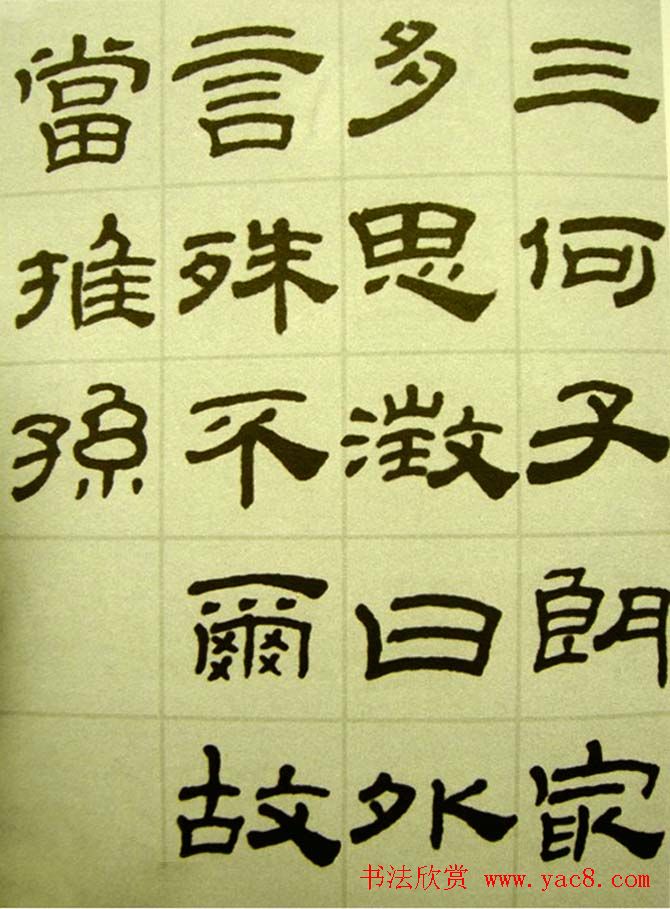 三何子朗㝡
多思澂曰外
言殊不爾故
當推孫
书法欣赏 www.yac8.com